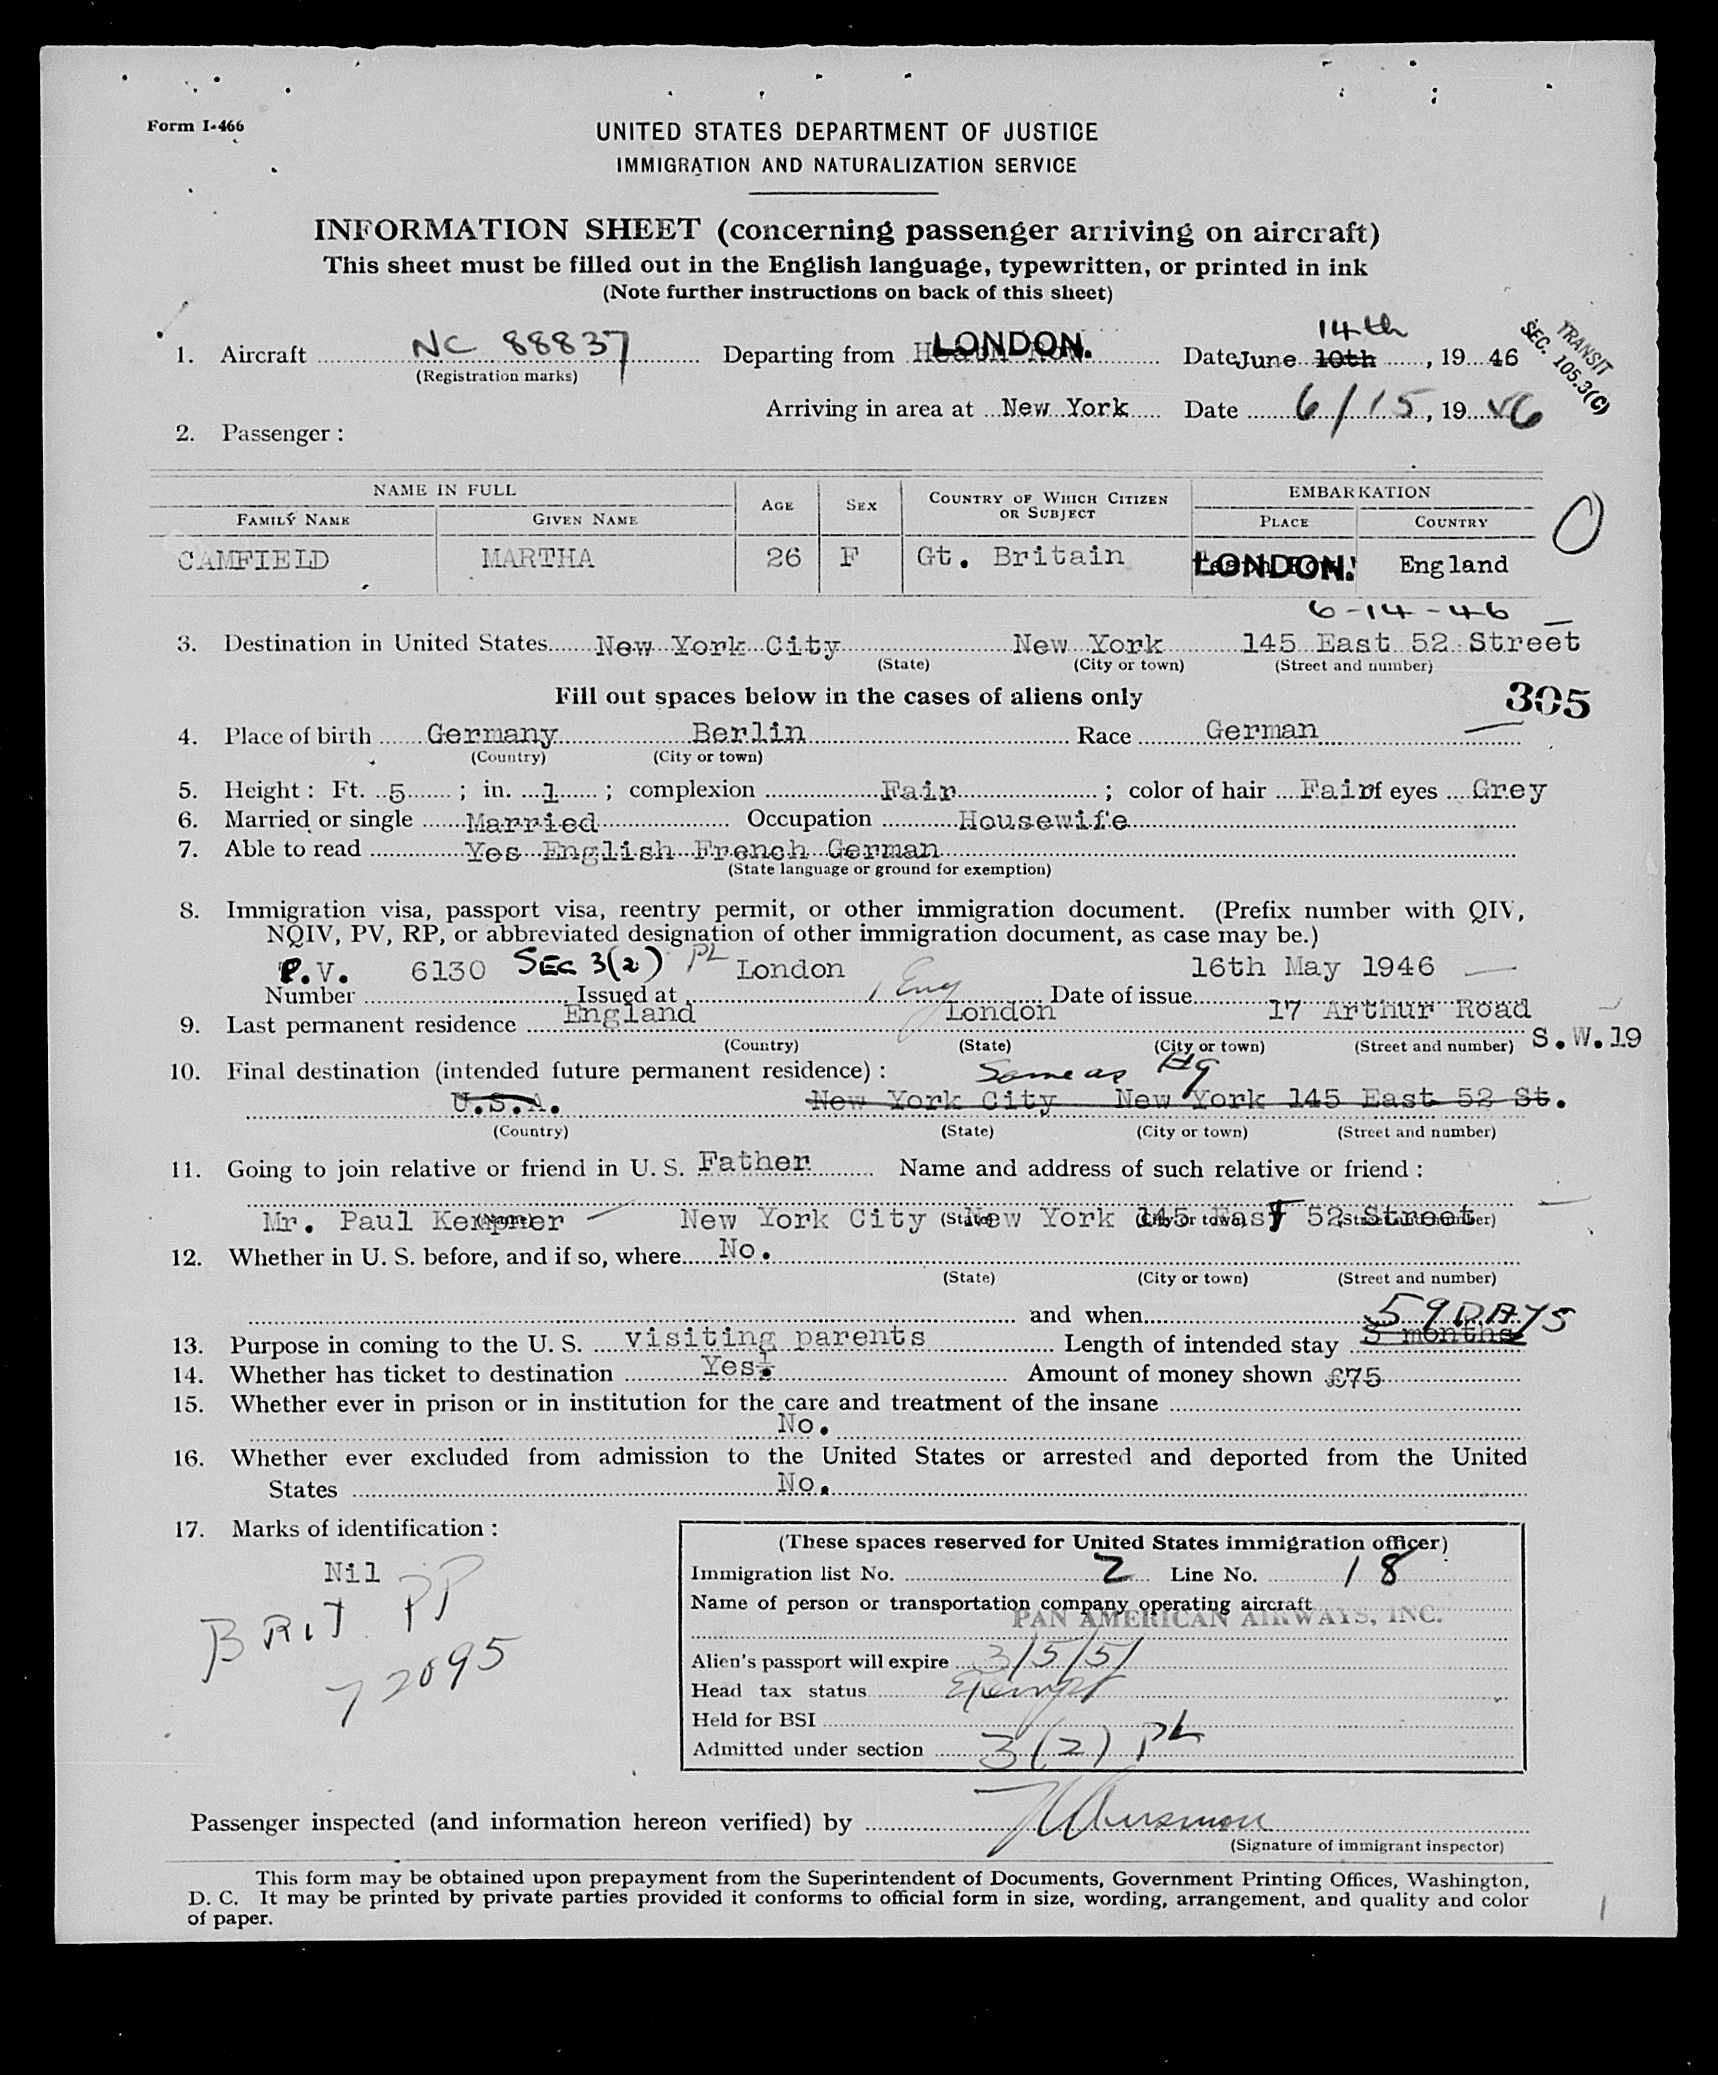 Form I-466
UNITED STATES DEPARTMENT OF JUSTICE
IMMIGRATION AND NATURALIZATION SERVICE
INFORMATION SHEET (concerning passenger arriving on aircraft)
This sheet must be filled out in the English language, typewritten, or printed in ink
(Note further instructions on back of this sheet)
14th
TRANSIT
SEC. 105.3(C)
1. Aircraft NC 88837 Departing from LONDON. Date June 10th, 19 46
(Registration marks)
Arriving in area at New York Date 6/15, 19 46
2. Passenger :
NAME IN FULL AGE SEX COUNTRY OF WHICH CITIZEN OR SUBJECT EMBARKATION
FAMILY NAME GIVEN NAME PLACE COUNTRY
CAMFIELD MARTHA 26 F Gt. Britain LONDON. England
0
6-14-46
3. Destination in United States New York City New York 145 East 52 Street
(State) (City or town) (Street and number)
Fill out spaces below in the cases of aliens only
305
4. Place of birth Germany Berlin Race German
(Country) (City or town)
5. Height : Ft. 5 ; in. 1 ; complexion Fair ; color of hair Fair of eyes Grey
6. Married or single Married Occupation Housewife
7. Able to read Yes English French German
(State language or ground for exemption)
8. Immigration visa, passport visa, reentry permit, or other immigration document. (Prefix number with QIV,
NQIV, PV, RP, or abbreviated designation of other immigration document, as case may be.)
P.V. 6130 SEC 3(2) PL London Eng 16th May 1946
Number Issued at Date of issue
9. Last permanent residence England London 17 Arthur Road
S.W.19
(Country) (State) (City or town) (Street and number)
10. Final destination (intended future permanent residence) : Same as #9
U.S.A. New York City New York 145 East 52 St.
(Country) (State) (City or town) (Street and number)
11. Going to join relative or friend in U. S. Father Name and address of such relative or friend :
Mr. Paul Kempner New York City New York 145 East 52 Street
(Name) (State) (City or town) (Street and number)
12. Whether in U. S. before, and if so, where No.
(State) (City or town) (Street and number)
and when
59 DAYS
13. Purpose in coming to the U. S. visiting parents Length of intended stay 3 months
14. Whether has ticket to destination Yes. Amount of money shown £75
15. Whether ever in prison or in institution for the care and treatment of the insane
No.
16. Whether ever excluded from admission to the United States or arrested and deported from the United
States No.
17. Marks of identification :
Nil
BRIT PP
72095
(These spaces reserved for United States immigration officer)
Immigration list No. 2 Line No. 18
Name of person or transportation company operating aircraft
PAN AMERICAN AIRWAYS, INC.
Alien's passport will expire 3/5/51
Head tax status Exempt
Held for BSI
Admitted under section 3(2) PL
Passenger inspected (and information hereon verified) by
(Signature of immigrant inspector)
This form may be obtained upon prepayment from the Superintendent of Documents, Government Printing Offices, Washington,
D. C. It may be printed by private parties provided it conforms to official form in size, wording, arrangement, and quality and color
of paper.